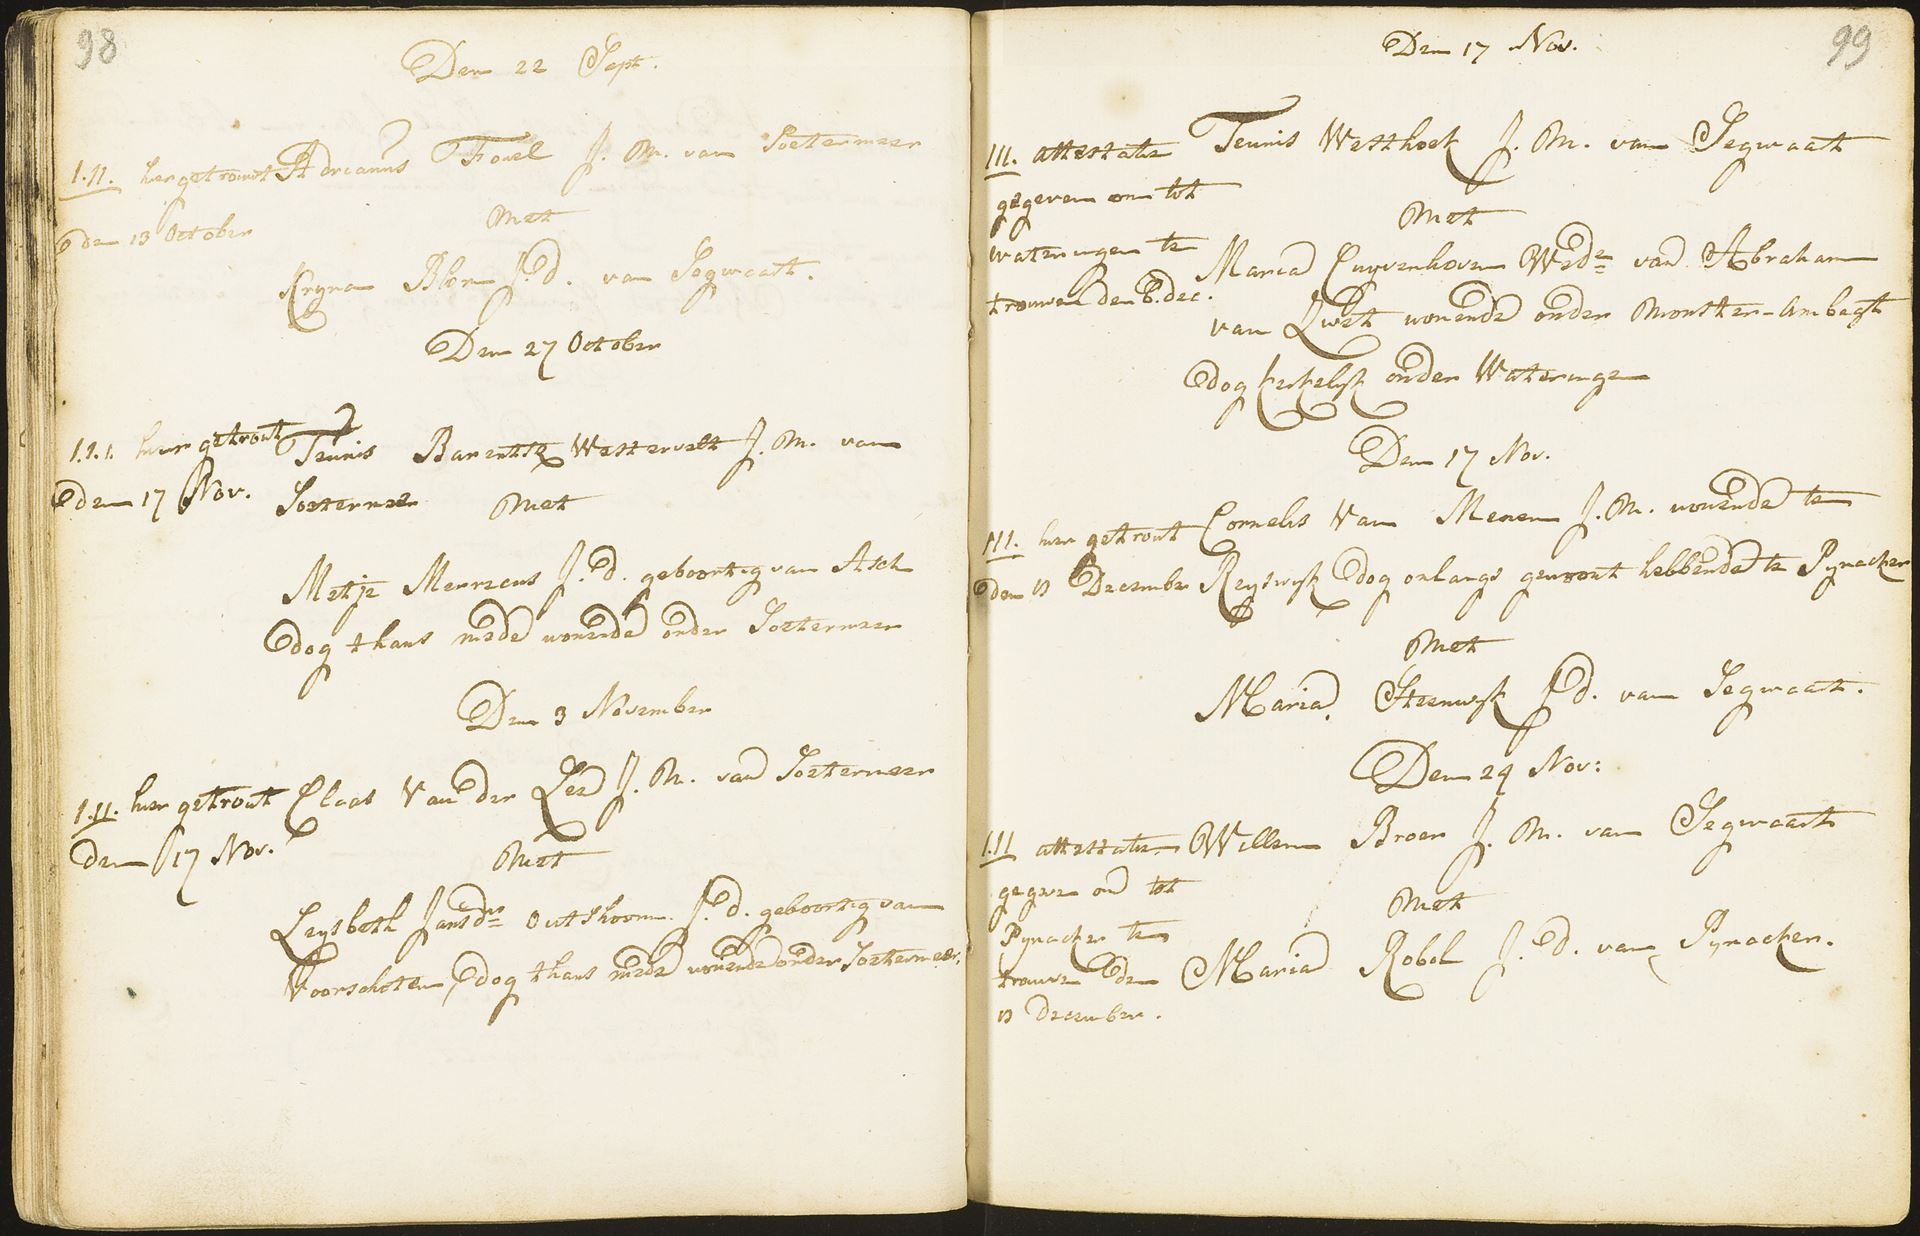 98
Den 22 Sept.
1.11. hier getrouwt Adrianus Fouel J. M. van Soetermeer
den 13 October
Met
Kryna Blom J. d. van Segwaart.
Den 27 October
1.1.1. hier getrout Teunis Barentse Westervelt J. M. van
den 17 Nov. Soetermeer
Met
Metje Meurzeus J. d. geboortig van Asch
dog thans mede wonende onder Soetermeer
Den 3 November
1.11. hier getrout Claas Van der Lee J. M. van Soetermeer
den 17 Nov.
Met
Leysbeth Jansdr Outshoorn J. d. geboortig van
Voorschoten, dog thans mede wonende onder Soetermeer.
99
Den 17 Nov.
111. attestatie Teunis Westhoek J. M. van Segwaart
gegeven om tot
Met
wateringen te Maria Cuyvenhoven Wede van Abraham
trouwen den 6. dec. van Zwet wonende onder Monster-ambagt
dog kerkelyk onder Wateringen
Den 17 Nov.
111. hier getrout Cornelis Van Meren J. M. wonende te
den 13 December Reyswyk dog onlangs gewoont hebbende te Pynacker
Met
Maria Steenwyk J d. van Segwaart.
Den 24 Nov:
1.11 attestatie Willem Broer J. M. van Segwaart
gegeven om tot
Met
Pynacker te
trouwen den Maria Robol J. d. van Pynacker.
13 December.